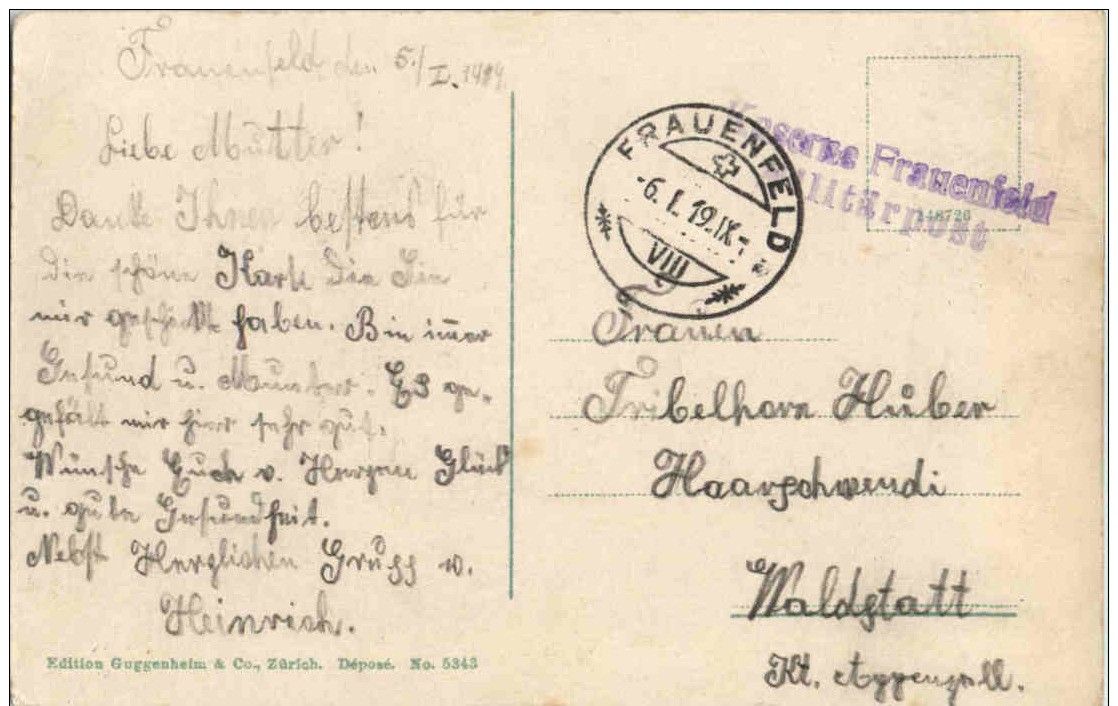 Frauenfeld den 5./I. 1919
Liebe Mutter!
Danke Ihnen bestens für
die schöne Karte die Sie
mir geschickt haben. Bin immer
Gesund u. Munter. Es ge-
gefält mir hier sehr gut.
Wünsche Euch v. Herzen Glück
u. gute Gesundheit.
Nebst Herzlichen Gruss v.
Heinrich.
Edition Guggenheim & Co., Zürich. Déposé. No. 5343
FRAUENFELD
-6.I.19.IX-
VIII
Kaserne Frauenfeld
Militärpost
Frauen
Tribelhorn Huber
Haarschwendi
Waldstatt
Kt. Appenzell.